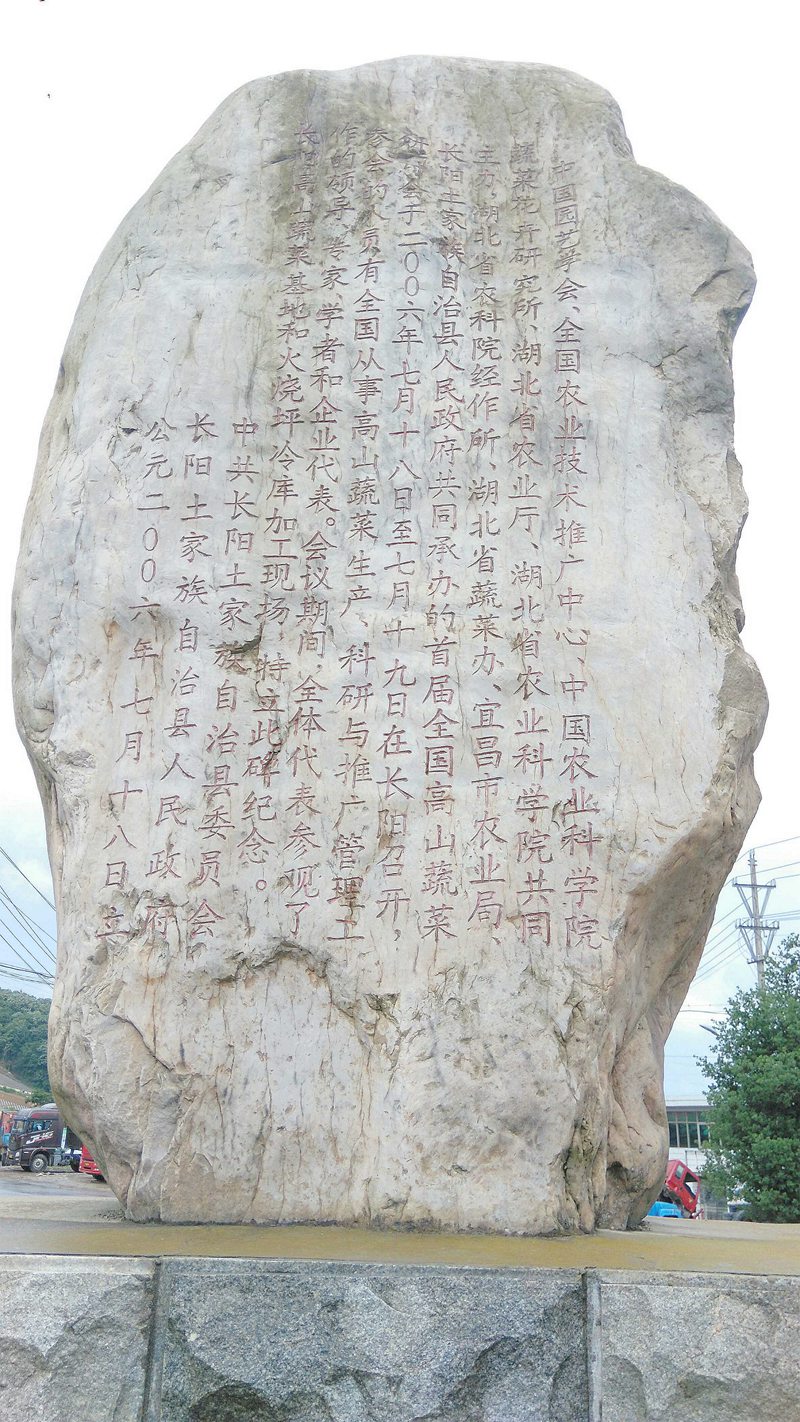 中国园艺学会、全国农业技术推广中心、中国农业科学院
蔬菜花卉研究所、湖北省农业厅、湖北省农业科学院共同
主办,湖北省农科院经作所、湖北省蔬菜办、宜昌市农业局、
长阳土家族自治县人民政府共同承办的首届全国高山蔬菜
研讨会于二00六年七月十八日至七月十九日在长阳召开,
参会的人员有全国从事高山蔬菜生产、科研与推广管理工
作的领导、专家、学者和企业代表。会议期间,全体代表参观了
长阳高山蔬菜基地和火烧坪冷库加工现场,特立此碑纪念。
中共长阳土家族自治县委员会
长阳土家族自治县人民政府
公元二00六年七月十八日立